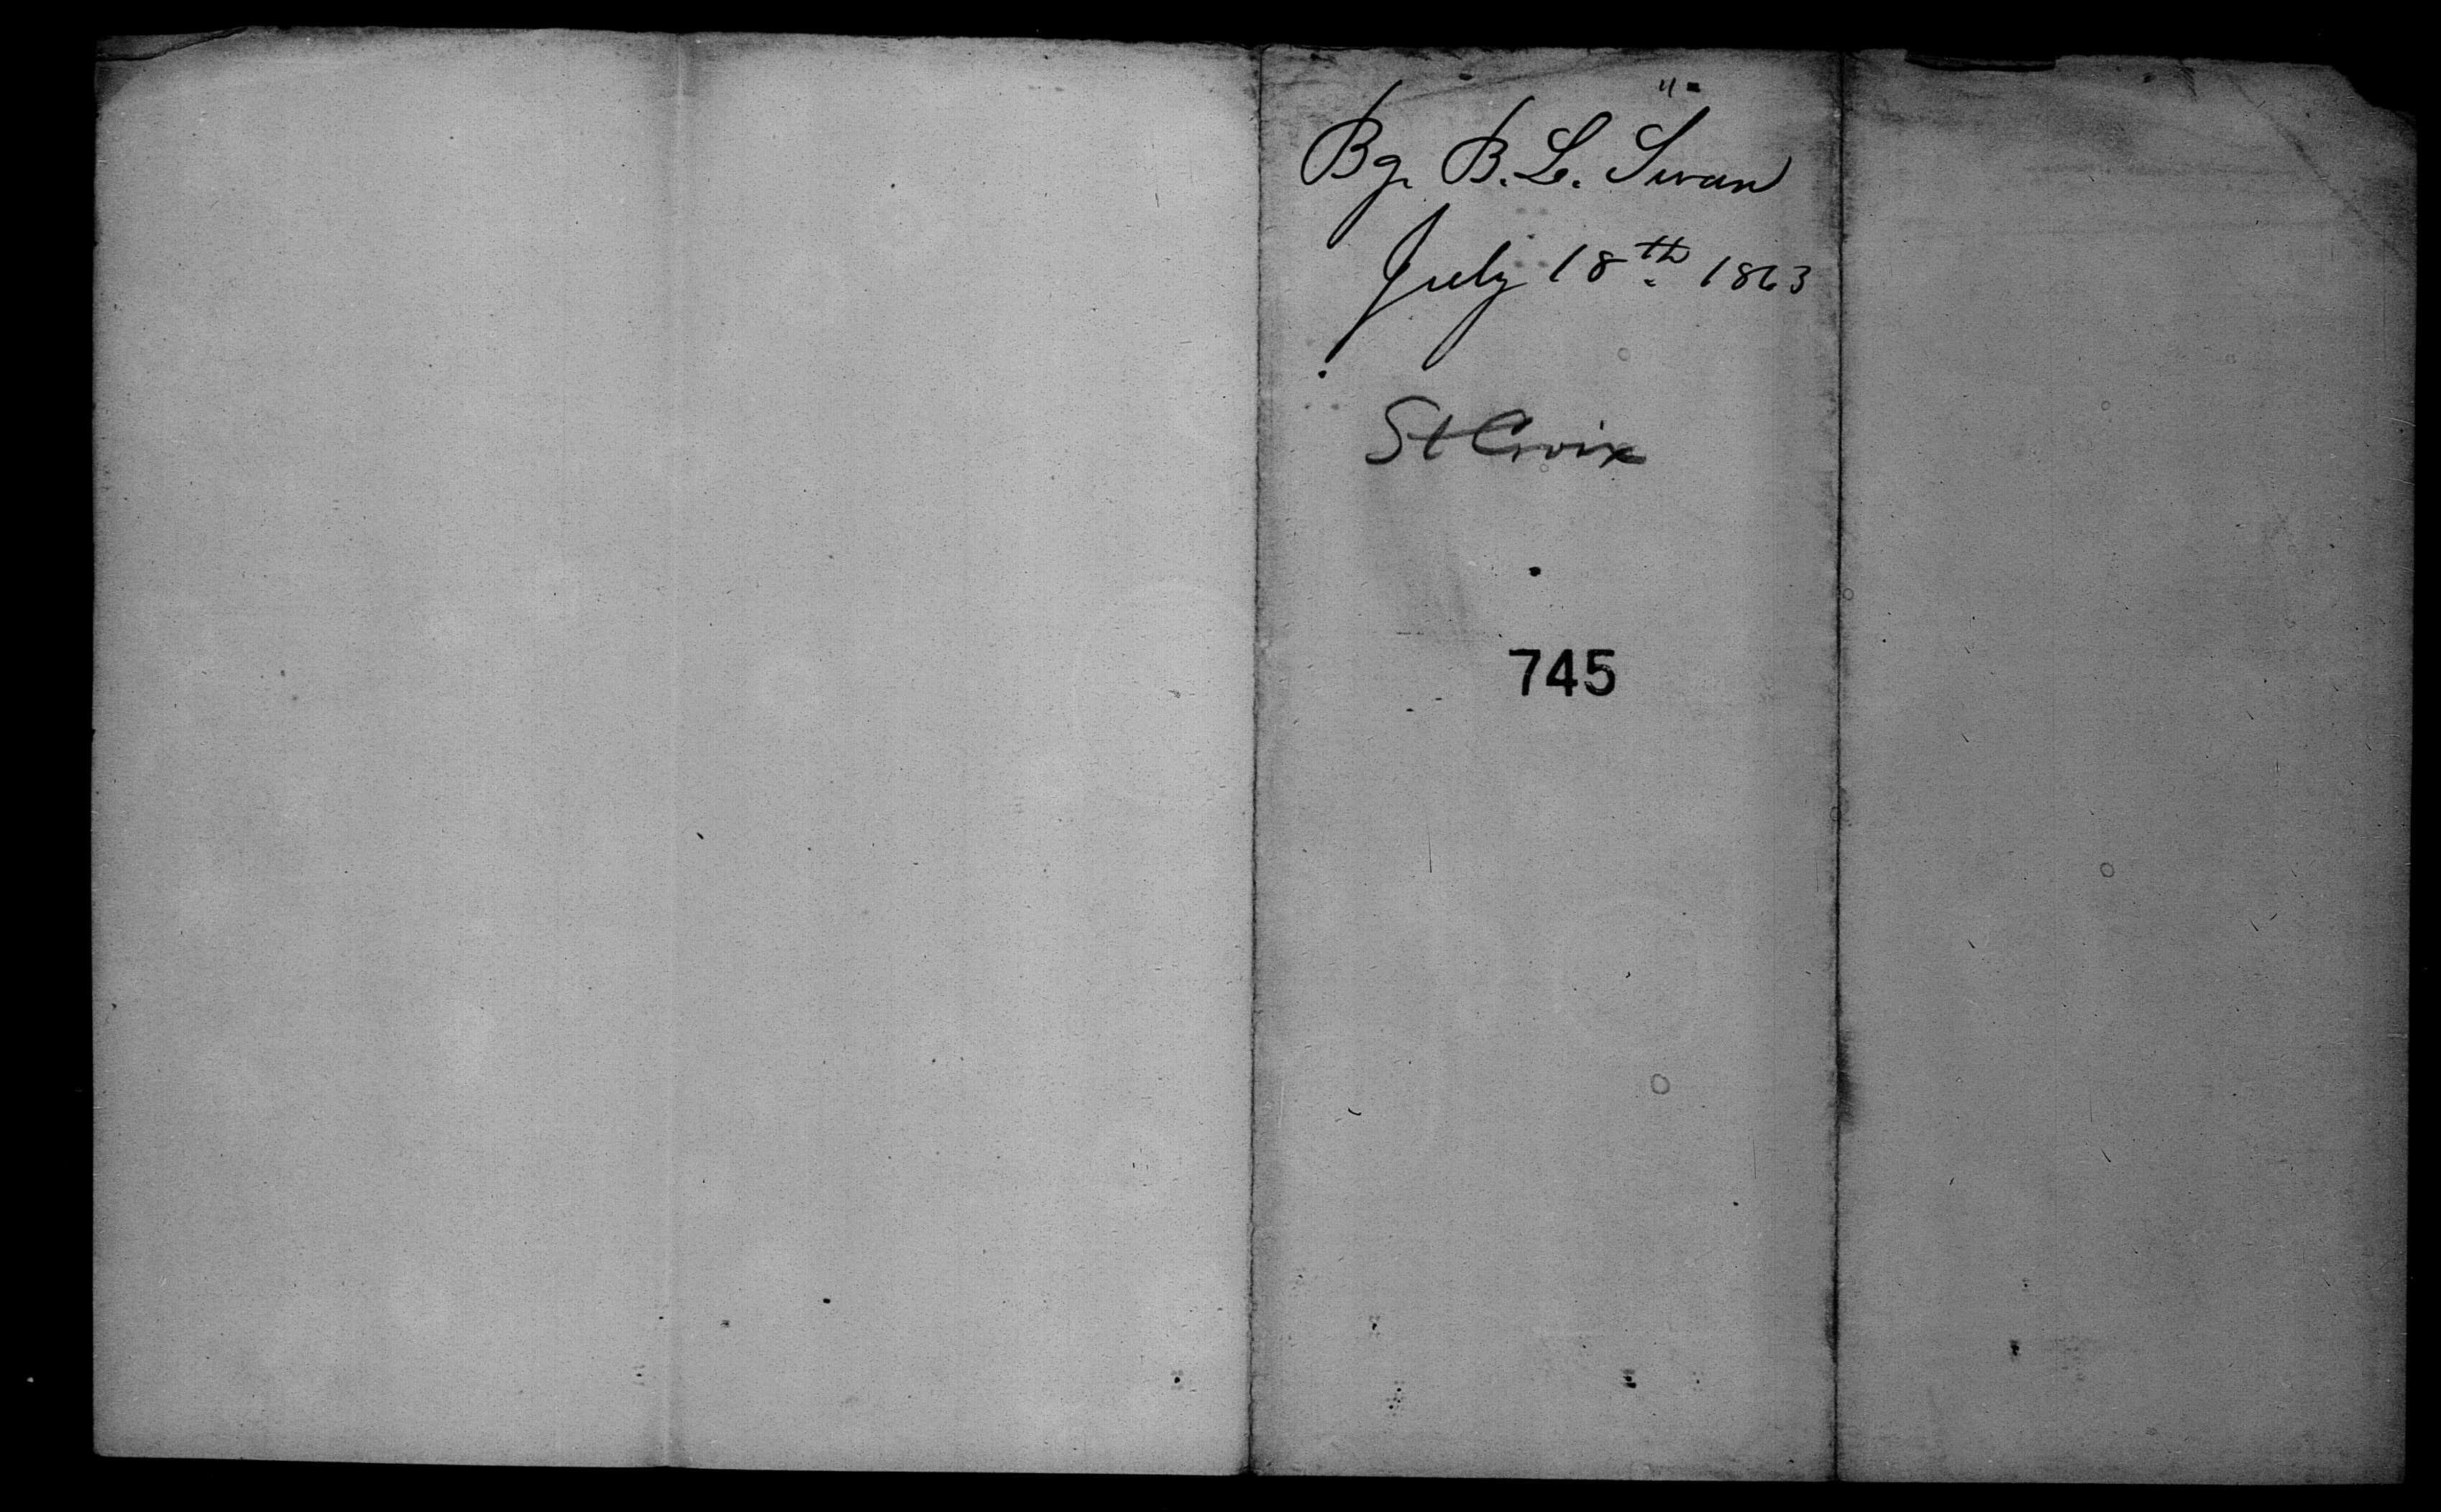 Bg. B. L. Swan
July 18th 1863
St Croix
745